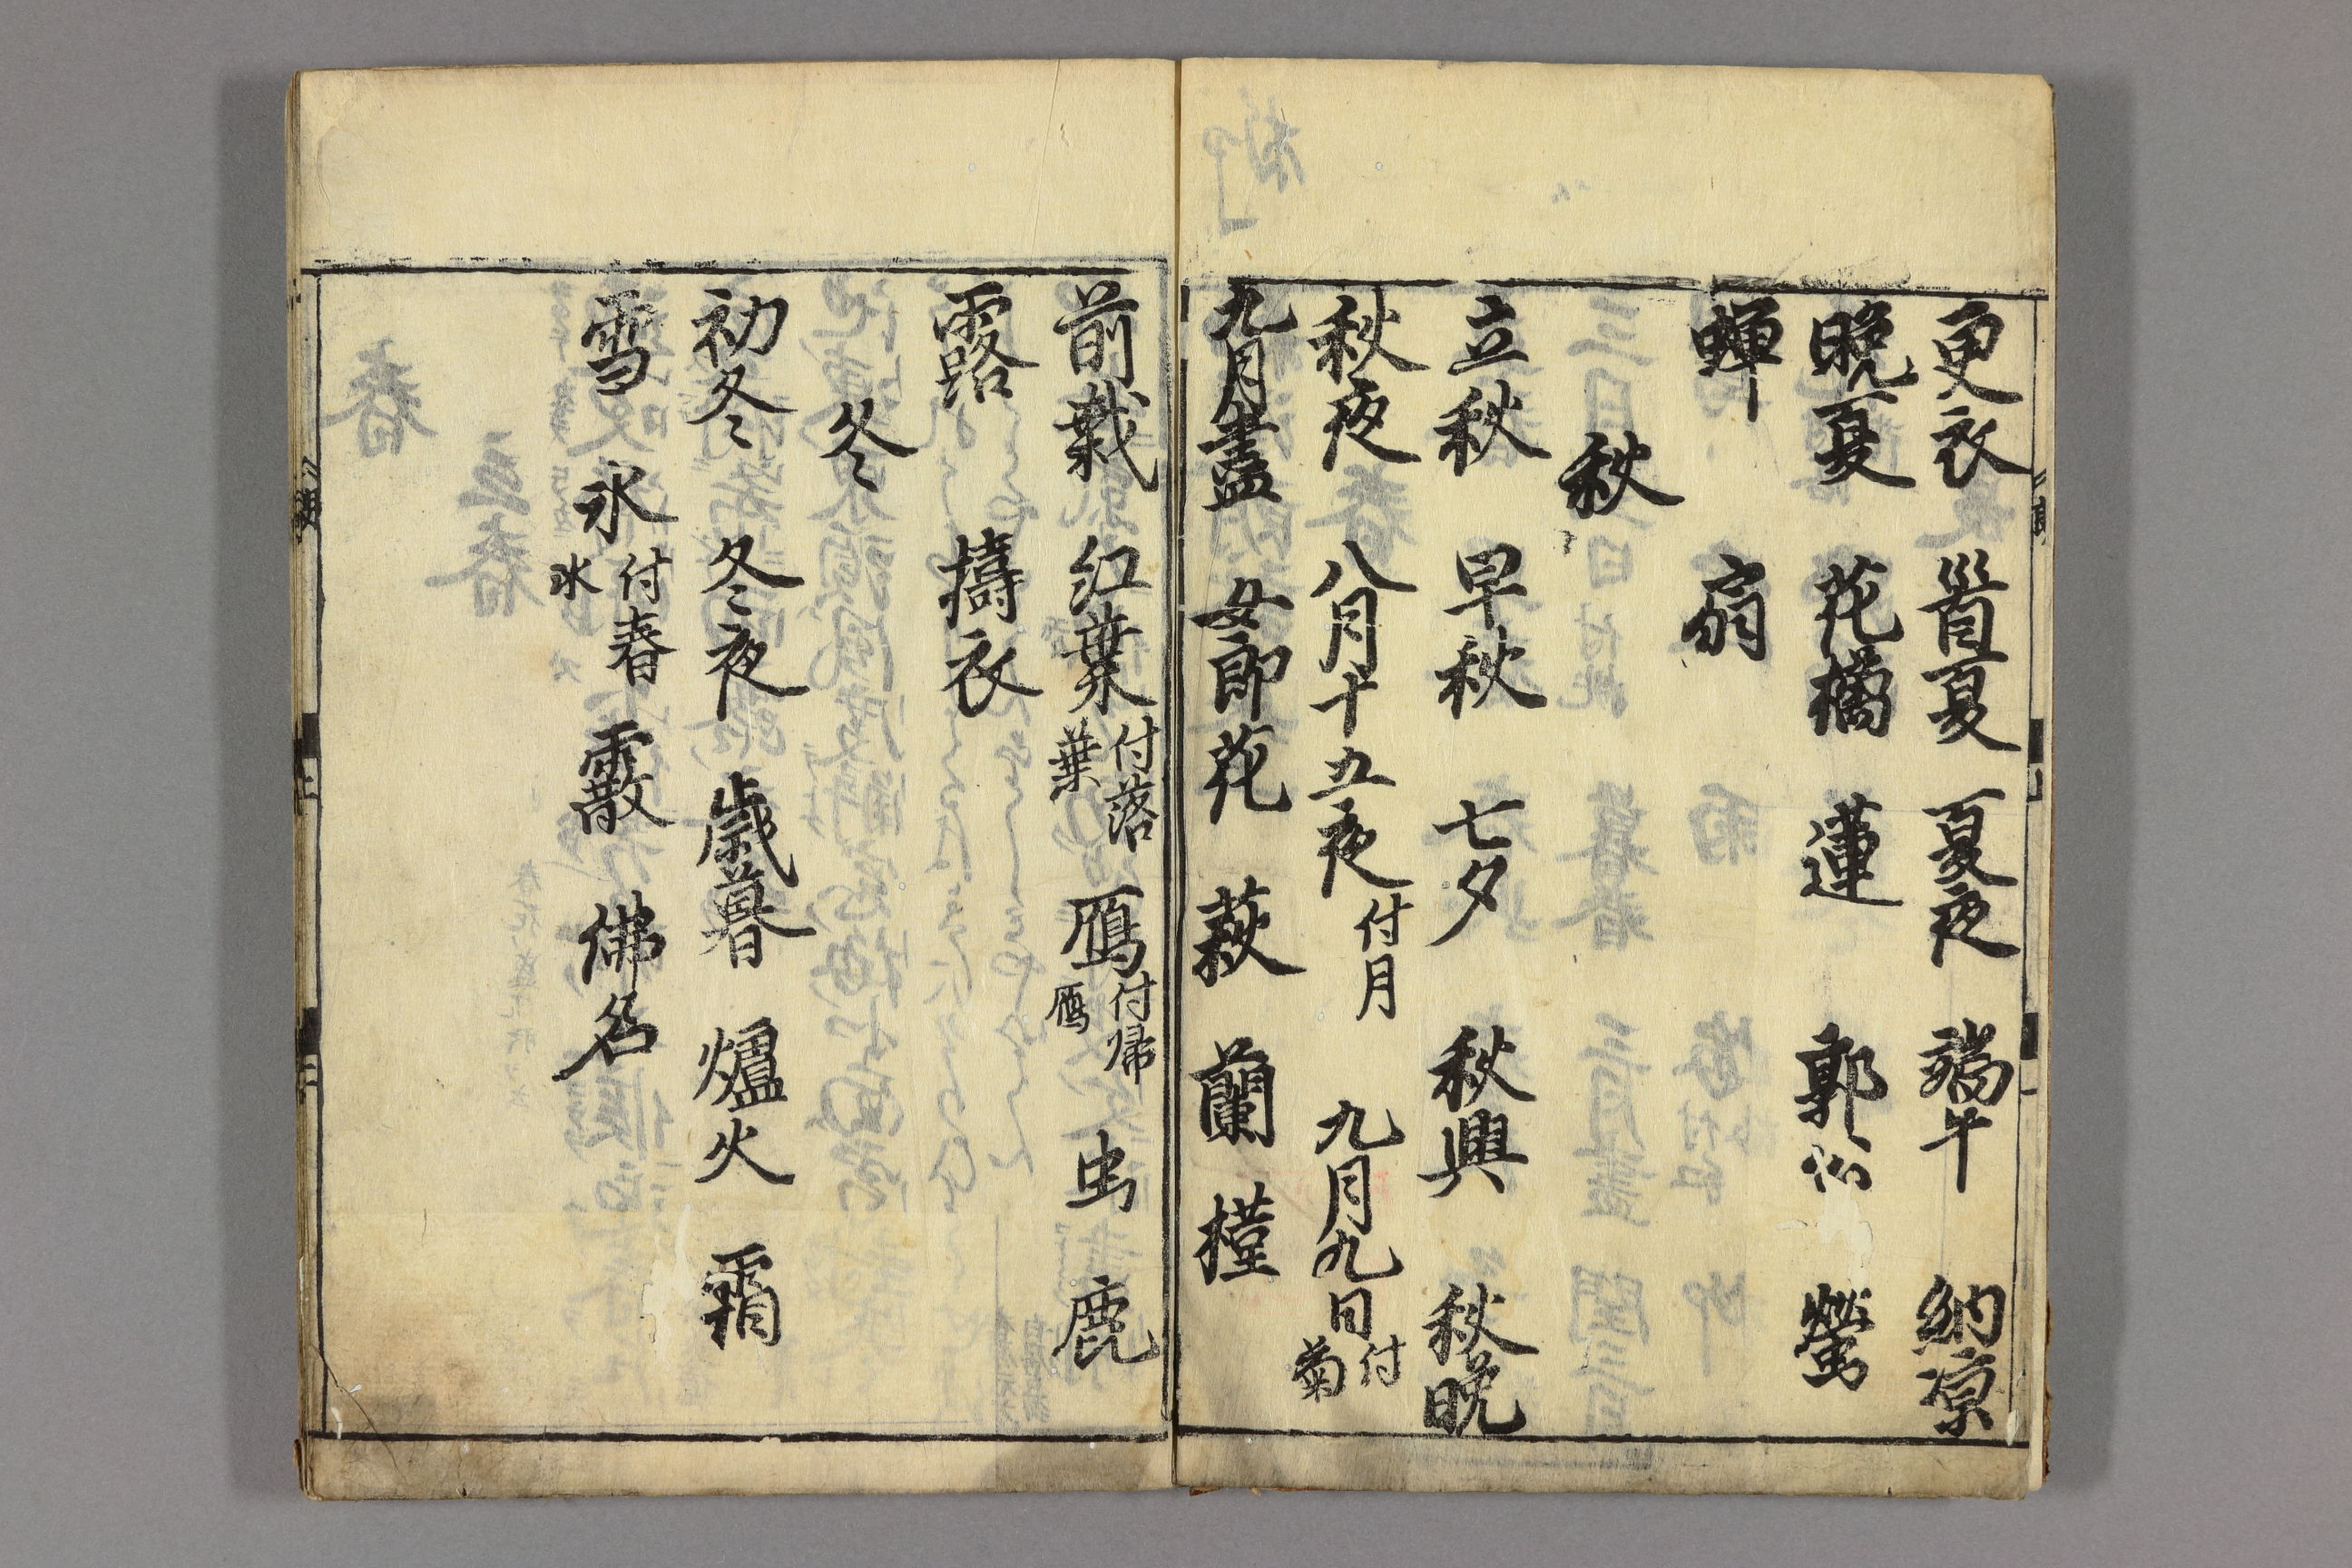 更衣 首夏 夏夜 端午 納涼
晩夏 花橘 蓮 郭公 螢
蝉 扇
秋
立秋 早秋 七夕 秋興 秋晩
秋夜 八月十五夜 付月 九月九日 付菊
九月盡 女郎花 萩 蘭 槿
前栽 紅葉 付落葉 鴈 付帰鴈 虫 鹿
露 擣衣
冬
初冬 冬夜 歳暮 爐火 霜
雪 氷 付春氷 霰 佛名